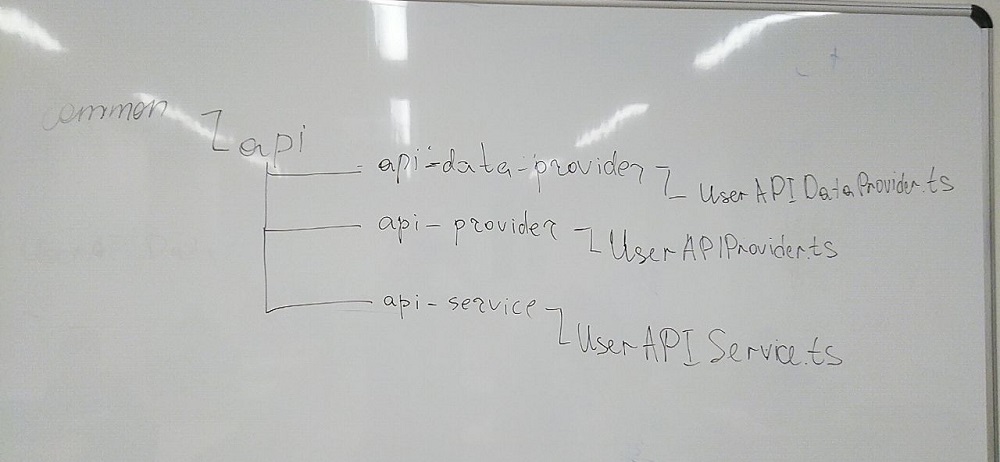 common
api
api-data-provider
UserAPIDataProvider.ts
api-provider
UserAPIProvider.ts
api-service
UserAPIService.ts